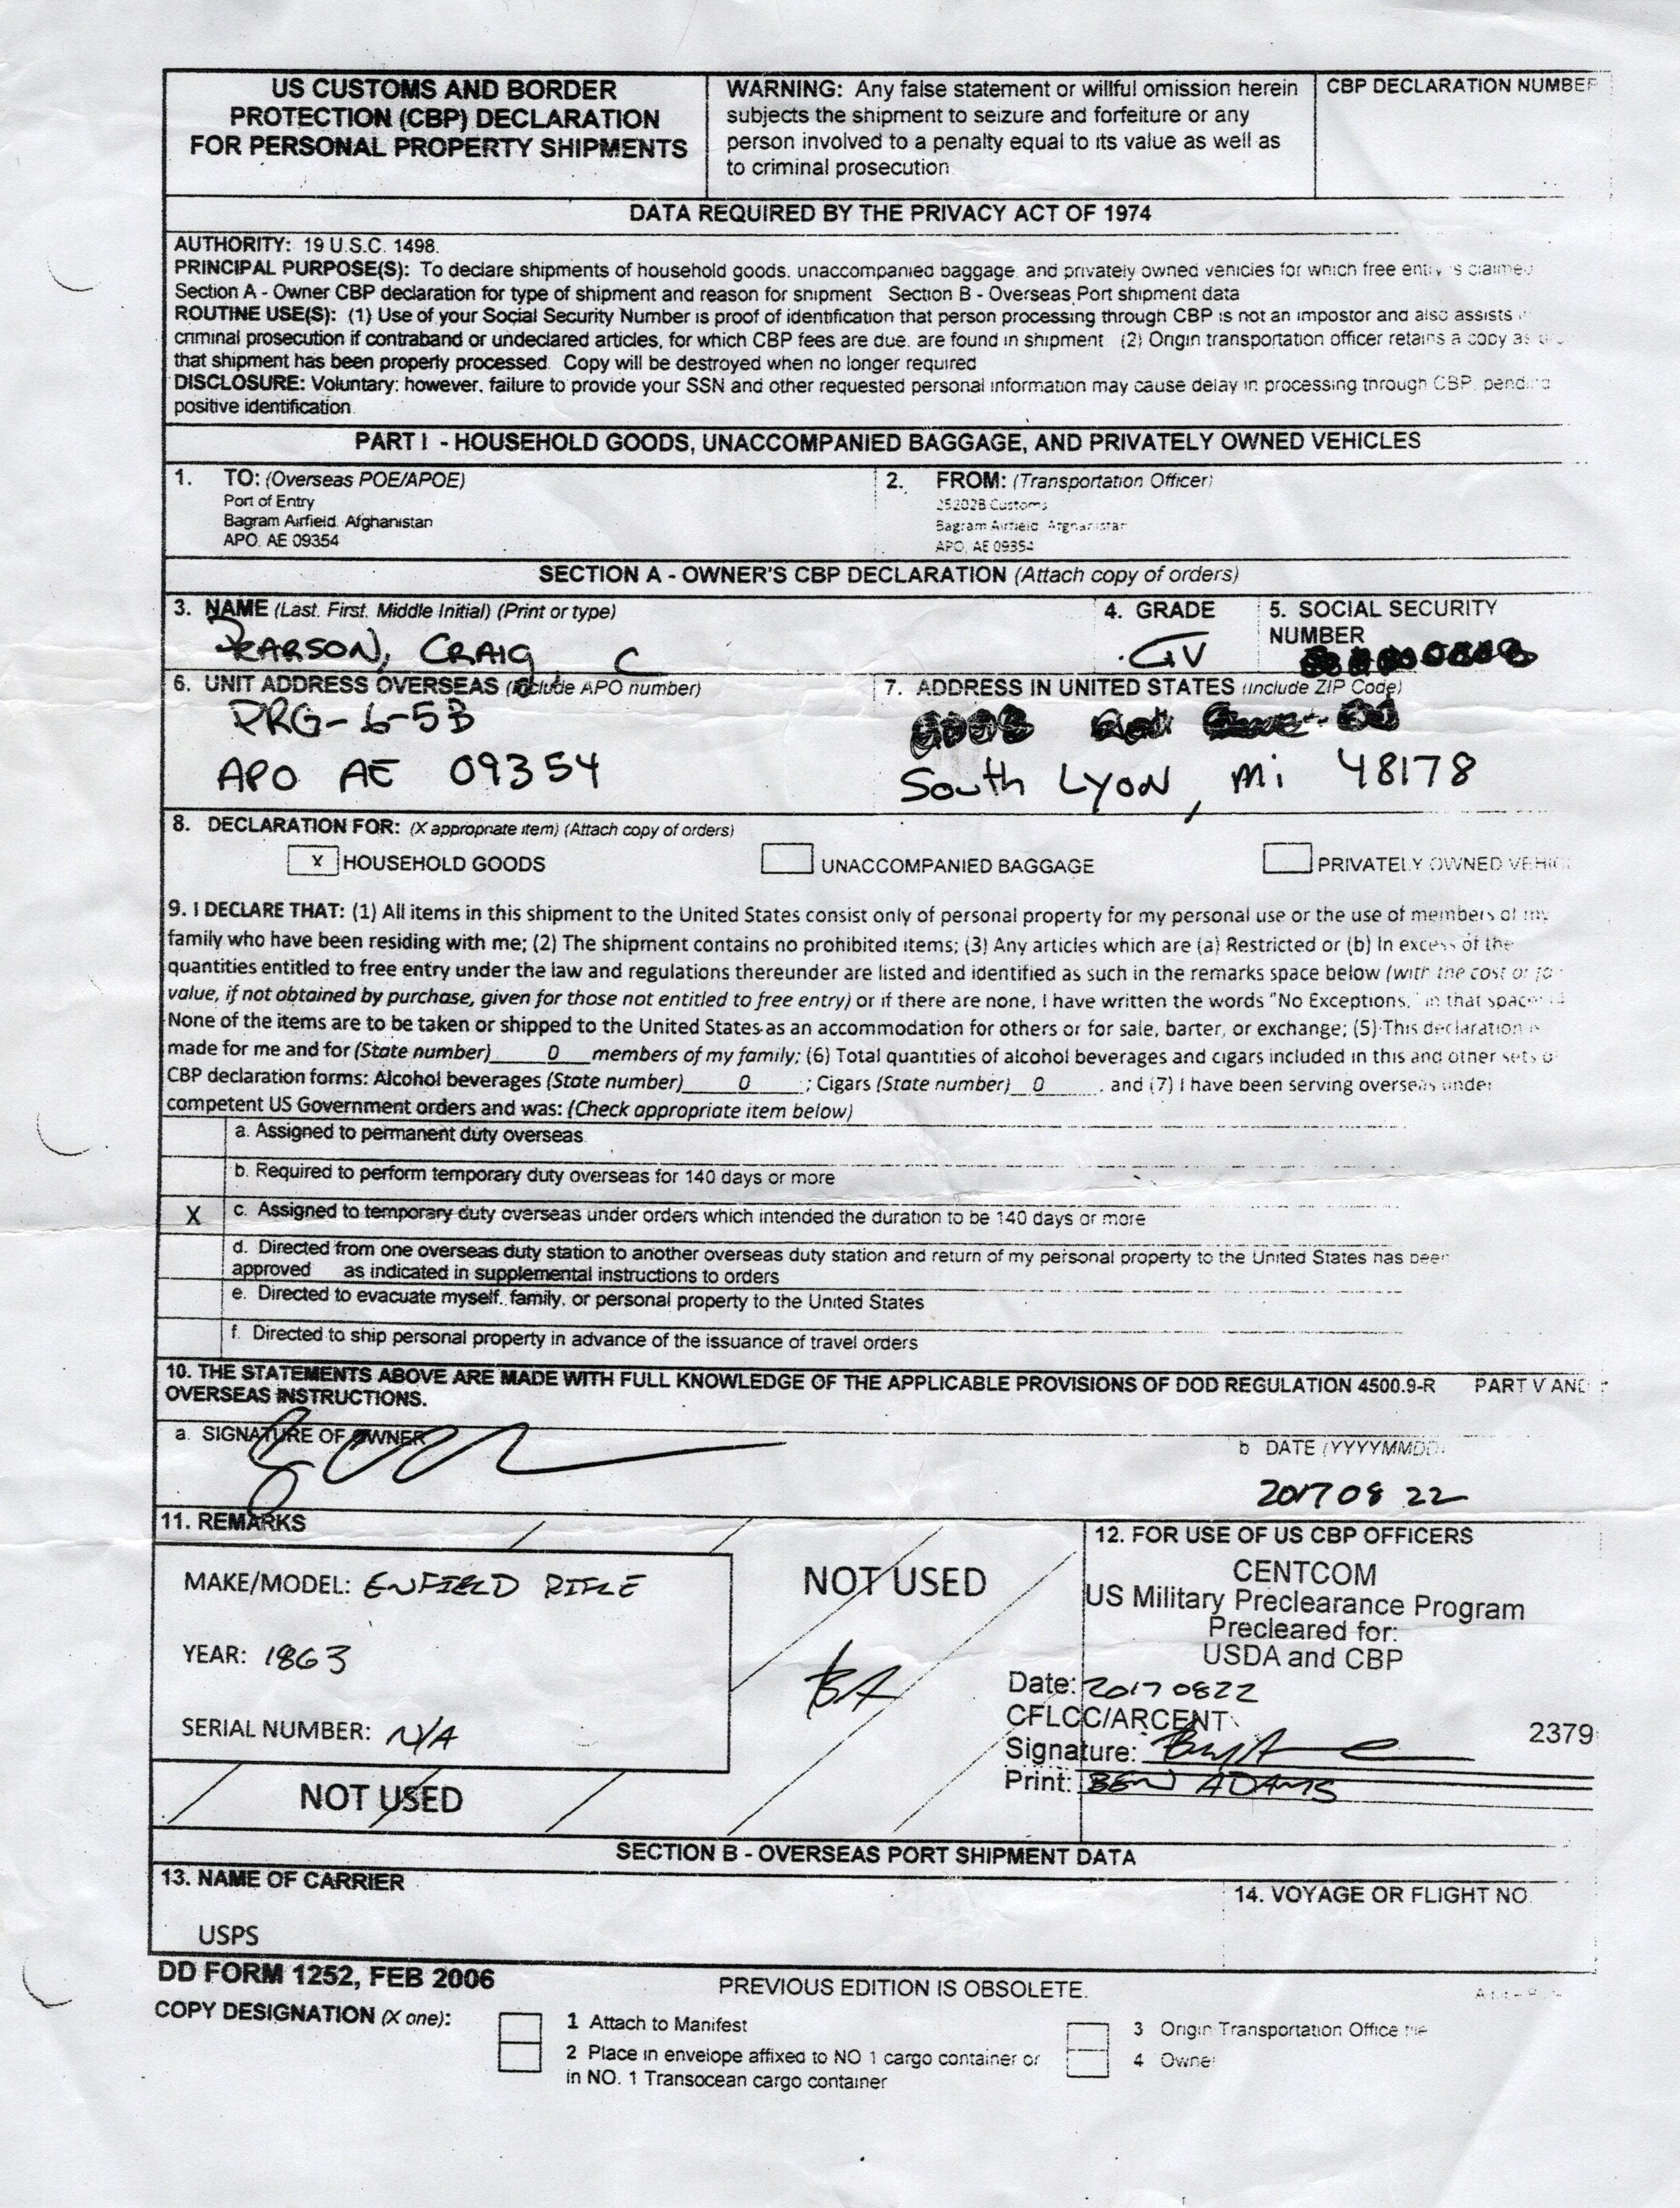 US CUSTOMS AND BORDER
PROTECTION (CBP) DECLARATION
FOR PERSONAL PROPERTY SHIPMENTS
WARNING: Any false statement or willful omission herein
subjects the shipment to seizure and forfeiture or any
person involved to a penalty equal to its value as well as
to criminal prosecution
CBP DECLARATION NUMBER
DATA REQUIRED BY THE PRIVACY ACT OF 1974
AUTHORITY: 19 U.S.C. 1498.
PRINCIPAL PURPOSE(S): To declare shipments of household goods, unaccompanied baggage, and privately owned vehicles for which free entry is claimed
Section A - Owner CBP declaration for type of shipment and reason for shipment Section B - Overseas Port shipment data
ROUTINE USE(S): (1) Use of your Social Security Number is proof of identification that person processing through CBP is not an impostor and also assists
criminal prosecution if contraband or undeclared articles, for which CBP fees are due, are found in shipment (2) Origin transportation officer retains a copy as
that shipment has been properly processed. Copy will be destroyed when no longer required
DISCLOSURE: Voluntary; however, failure to provide your SSN and other requested personal information may cause delay in processing through CBP, pending
positive identification
PART I - HOUSEHOLD GOODS, UNACCOMPANIED BAGGAGE, AND PRIVATELY OWNED VEHICLES
1. TO: (Overseas POE/APOE)
Port of Entry
Bagram Airfield, Afghanistan
APO, AE 09354
2. FROM: (Transportation Officer)
25202B Customs
Bagram Airfield Afghanistan
APO, AE 09354
SECTION A - OWNER'S CBP DECLARATION (Attach copy of orders)
3. NAME (Last, First, Middle Initial) (Print or type)
PEARSON, CRAIG, C
4. GRADE
GV
5. SOCIAL SECURITY
NUMBER
6. UNIT ADDRESS OVERSEAS (Include APO number)
PRG-6-5B
APO AE 09354
7. ADDRESS IN UNITED STATES (Include ZIP Code)
South Lyon, Mi 48178
8. DECLARATION FOR: (X appropriate item) (Attach copy of orders)
X HOUSEHOLD GOODS
UNACCOMPANIED BAGGAGE
PRIVATELY OWNED VEHIC
9. I DECLARE THAT: (1) All items in this shipment to the United States consist only of personal property for my personal use or the use of members of my
family who have been residing with me; (2) The shipment contains no prohibited items; (3) Any articles which are (a) Restricted or (b) In excess of the
quantities entitled to free entry under the law and regulations thereunder are listed and identified as such in the remarks space below (with the cost or
value, if not obtained by purchase, given for those not entitled to free entry) or if there are none, I have written the words "No Exceptions," in that space
None of the items are to be taken or shipped to the United States as an accommodation for others or for sale, barter, or exchange; (5) This declaration is
made for me and for (State number) 0 members of my family; (6) Total quantities of alcohol beverages and cigars included in this and other sets of
CBP declaration forms: Alcohol beverages (State number) 0 ; Cigars (State number) 0 , and (7) I have been serving overseas under
competent US Government orders and was: (Check appropriate item below)
a. Assigned to permanent duty overseas
b. Required to perform temporary duty overseas for 140 days or more
X c. Assigned to temporary duty overseas under orders which intended the duration to be 140 days or more
d. Directed from one overseas duty station to another overseas duty station and return of my personal property to the United States has been
approved as indicated in supplemental instructions to orders
e. Directed to evacuate myself, family, or personal property to the United States
f. Directed to ship personal property in advance of the issuance of travel orders
10. THE STATEMENTS ABOVE ARE MADE WITH FULL KNOWLEDGE OF THE APPLICABLE PROVISIONS OF DOD REGULATION 4500.9-R PART V AND
OVERSEAS INSTRUCTIONS.
a. SIGNATURE OF OWNER
b DATE (YYYYMMDD)
20170822
11. REMARKS
MAKE/MODEL: ENFIELD RIFLE
YEAR: 1863
SERIAL NUMBER: N/A
NOT USED
NOT USED
BA
12. FOR USE OF US CBP OFFICERS
CENTCOM
US Military Preclearance Program
Precleared for:
USDA and CBP
Date: 20170822
CFLCC/ARCENT
2379
Signature:
Print: BEN ADAMS
SECTION B - OVERSEAS PORT SHIPMENT DATA
13. NAME OF CARRIER
USPS
14. VOYAGE OR FLIGHT NO.
DD FORM 1252, FEB 2006
PREVIOUS EDITION IS OBSOLETE.
COPY DESIGNATION (X one):
1 Attach to Manifest
2 Place in envelope affixed to NO 1 cargo container or
in NO. 1 Transocean cargo container
3 Origin Transportation Office file
4 Owner